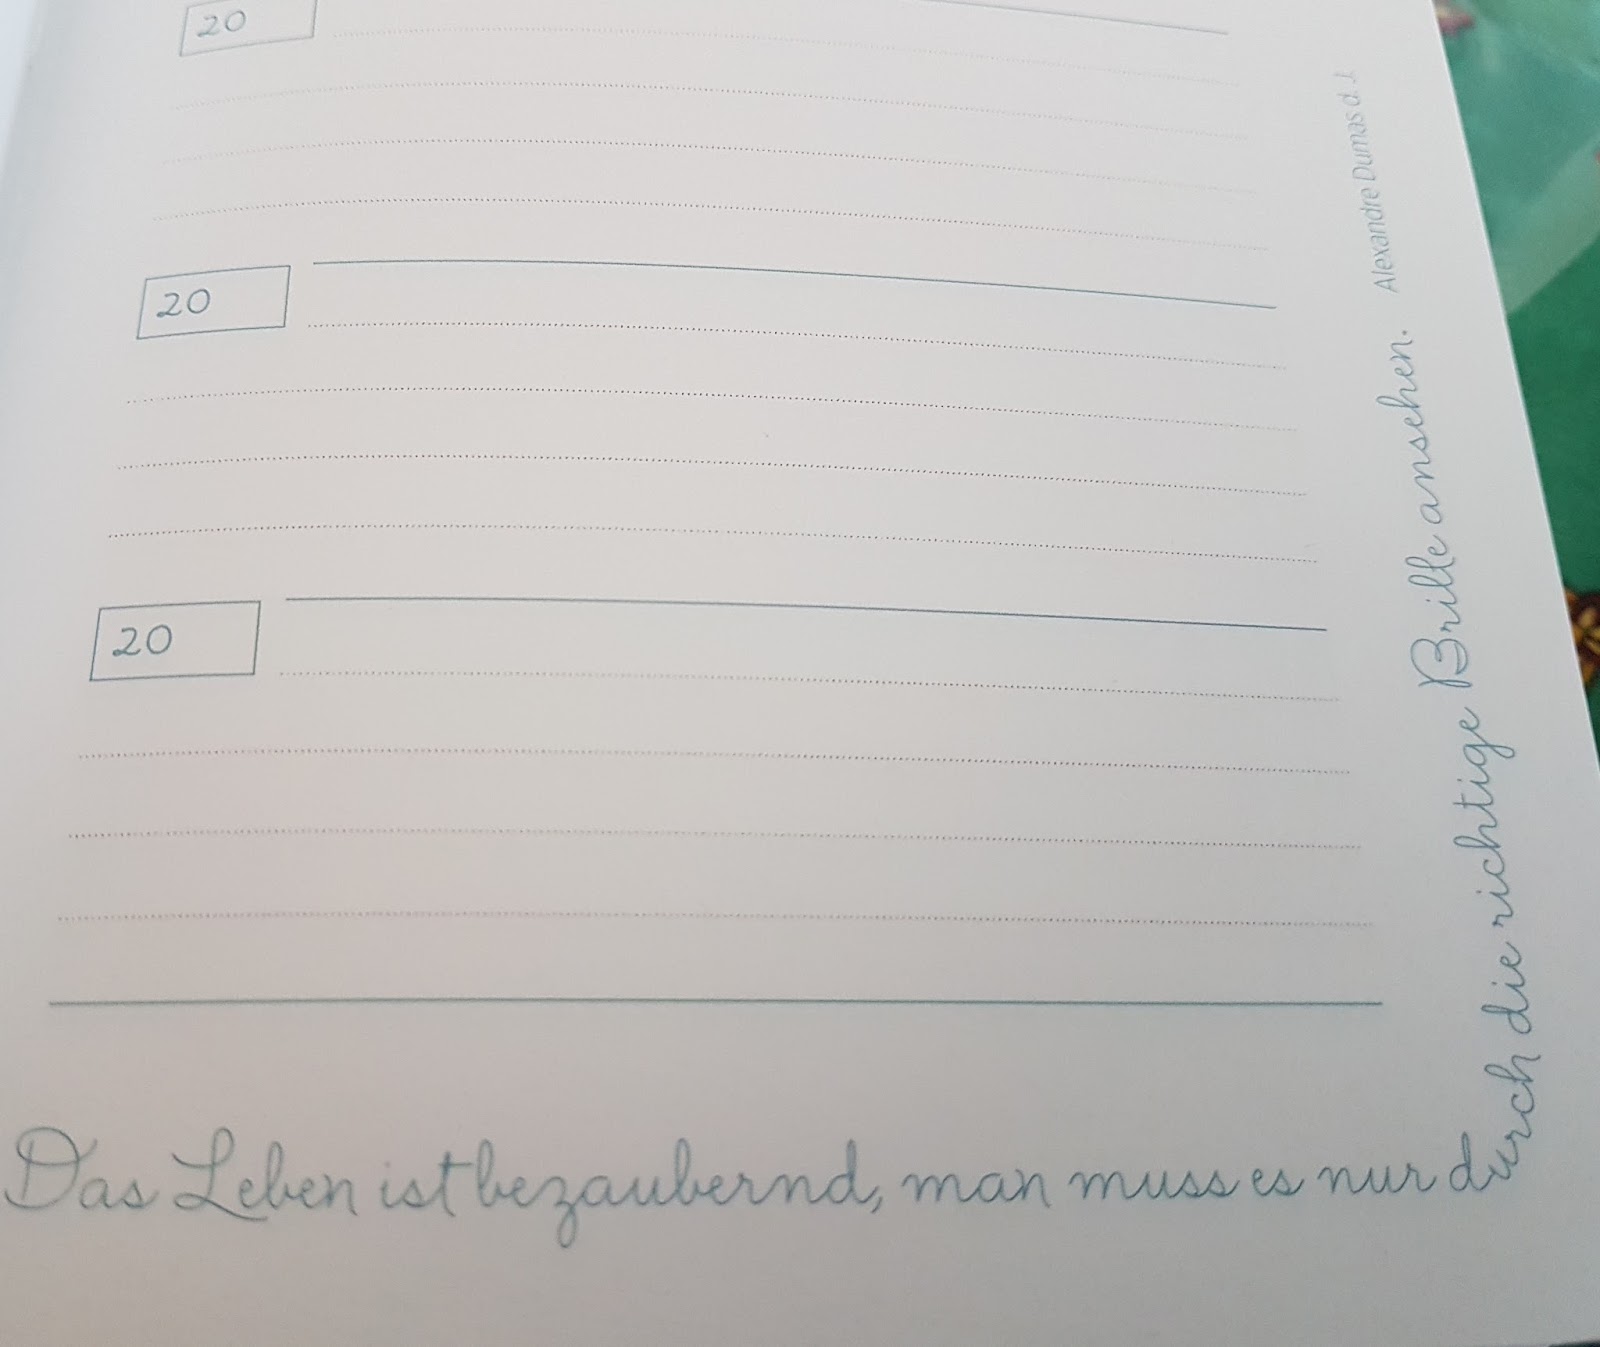 20
20
20
Das Leben ist bezaubernd, man muss es nur durch die richtige Brille ansehen. Alexandre Dumas d. J.